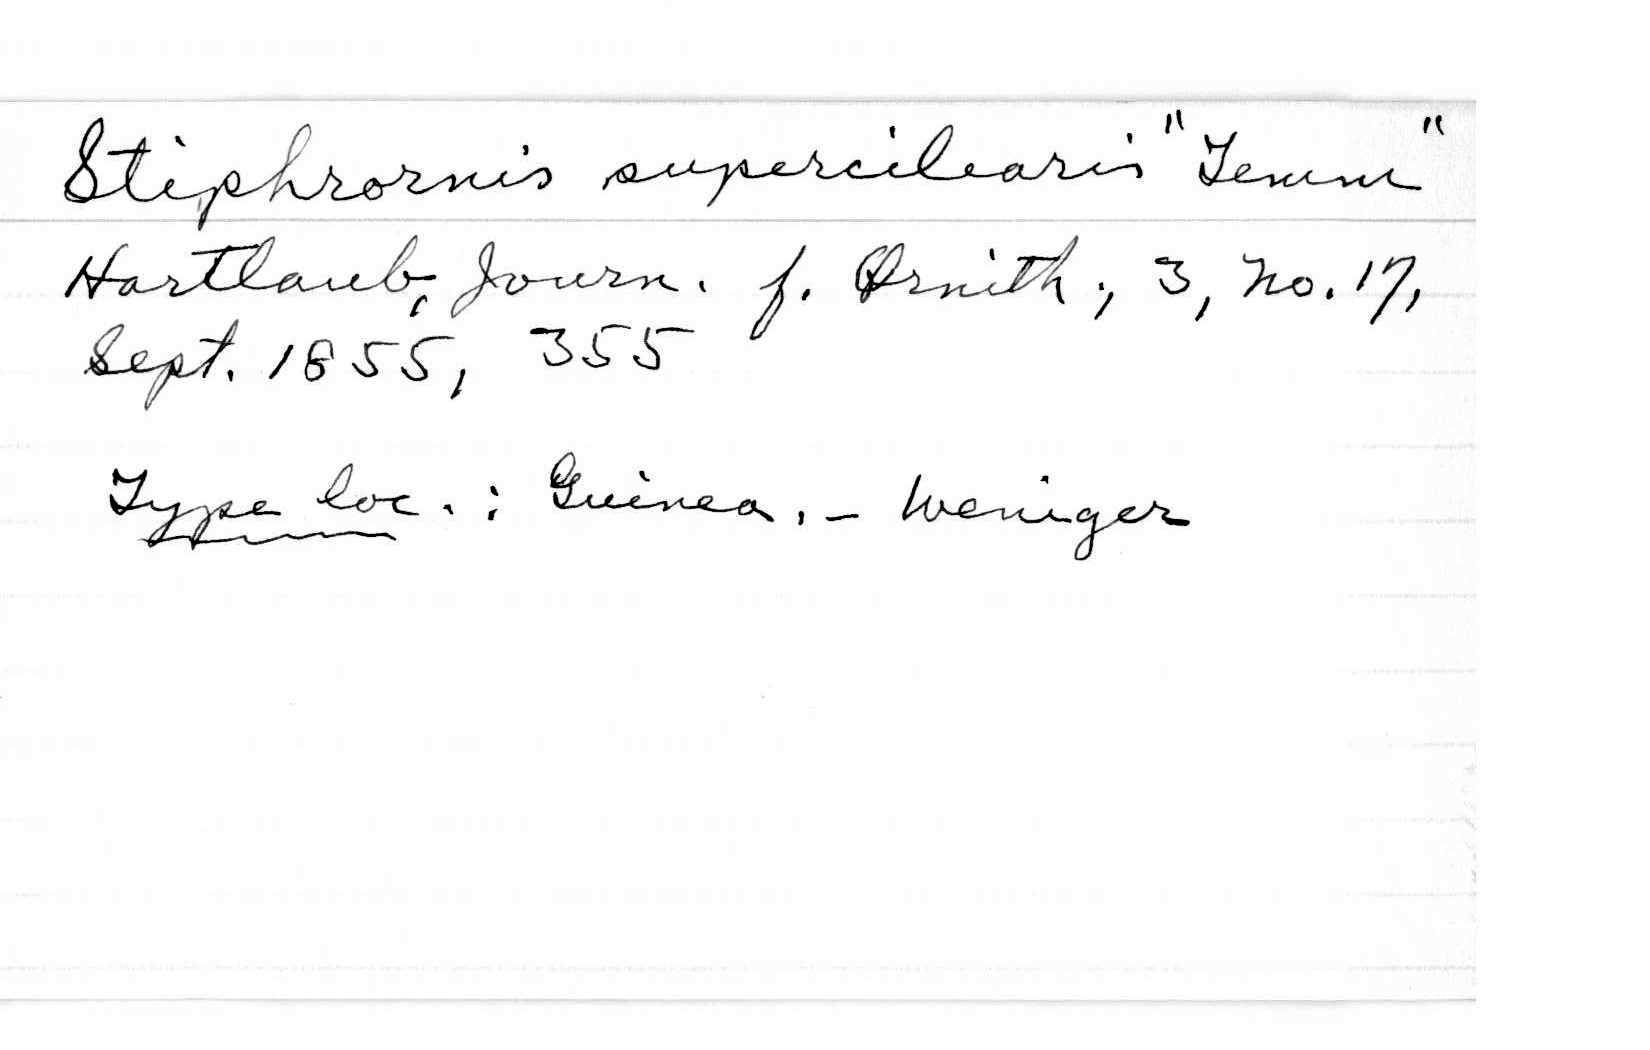 Stiphrornis supercilearis "Temm"
Hartlaub, Journ. f. Ornith., 3, no. 17,
Sept. 1855, 355
Type loc. : Guinea. - Weniger